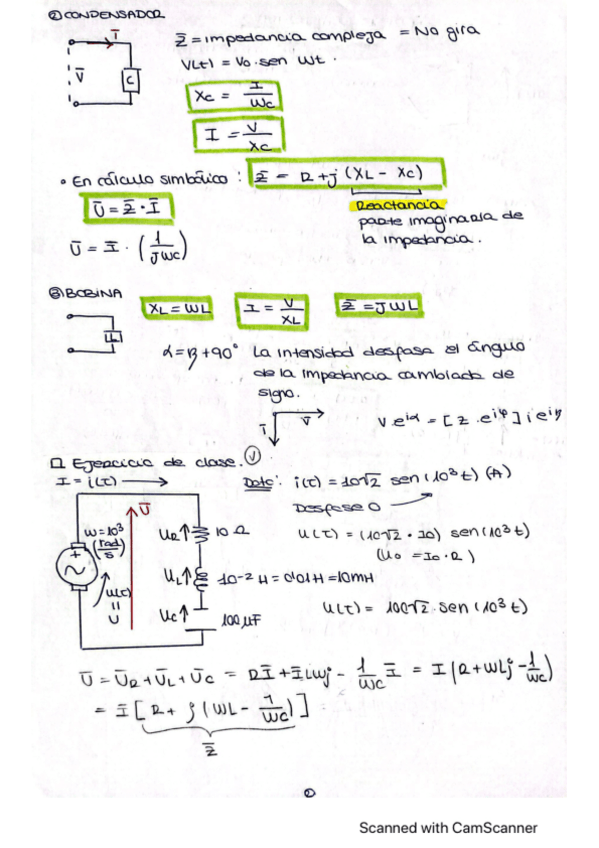 ② CONDENSADOR
I
V
C
Z̄ = impedancia compleja = No gira
V(t) = Vo · sen Wt.
Xc = I / Wc
I = V / Xc
• En cálculo simbólico: Z̄ = R + j (XL - Xc)
Ū = Z̄ · Ī
Reactancia
parte imaginaria de
la impedancia.
Ū = Ī · (1 / JWC)
③ BOBINA
XL = WL
I = V / XL
Z̄ = JWL
α = β + 90°
La intensidad despasa el ángulo
de la impedancia cambiada de
signo.
V
I
V·e^iα = [Z · e^iφ] i e^iβ
Ejercicio de clase. (V)
I = i(t)
Dato: i(t) = 10√2 sen (10³t) (A)
Desfase 0
Ū
W = 10³
(rad/s)
u(t) = U
UR
10 Ω
UL
10-2 H = 0'01H = 10mH
Uc
100 µF
u(t) = (10√2 · 10) sen (10³t)
(Uo = Io · R)
u(t) = 100√2 · sen (10³t)
Ū = ŪR + ŪL + Ūc = RĪ + ĪLWj - 1/WC Ī = I (R + WLj - 1/WC)
= Ī [R + j (WL - 1/WC)]
Z̄
Scanned with CamScanner